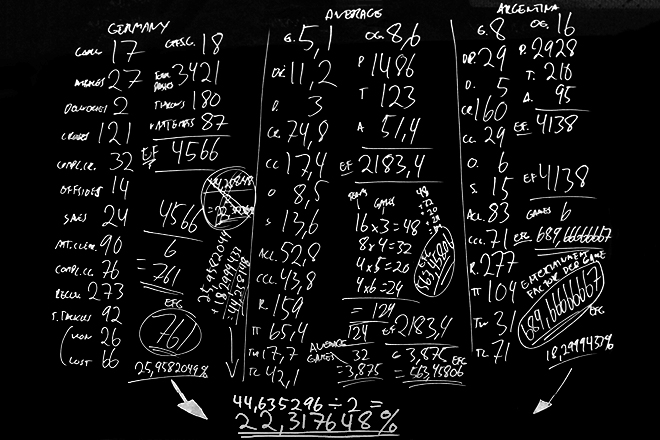 GERMANY
GOALS. 17
27
2
CROSSES 121
COMPL.CR. 32
OFFSIDES 14
SAVES 24
ATT.CLEAR. 90
COMPL.CL. 76
RECOV. 273
T. TACKLES 92
WON 26
LOST 66
18
3421
TACKLES 180
ATTEMPTS 87
EF 4566
4566
6
= 761
EFG
761
25,9582049%
25,9582049
+ 18,2999437
AVERAGE
G. 5,1
11,2
D. 3
CR. 74,8
CC 17,4
O 8,5
S 13,6
ACL. 52,8
CCL. 43,8
R. 159
TT 65,4
TW 17,7
TL 42,1
OG 8,6
P 1486
T 123
A 51,4
EF. 2183,4
GAMES
16 x 3 = 48
8 x 4 = 32
4 x 5 = 20
4 x 6 = 24
= 124
48
+ 32
+ 20
+ 24
= 124
EFG
563,45806
AVERAGE
GAMES
124
32
= 3,875
EF 2183,4
÷ 3,875 EFG
= 563,45806
44,635296 ÷ 2 =
22,317648%
ARGENTINA
G. 8
DR. 29
D. 5
CR 160
CC. 29
O. 6
S. 15
ACL. 83
CCL. 71
R. 277
TT 104
TW 31
TL 71
OG. 16
P. 2928
T. 218
A. 95
EF. 4138
EF 4138
GAMES 6
EFG 689,66666667
ENTERTAINMENT
FACTOR PER GAME
689,66666667
EFG
18,2999437%